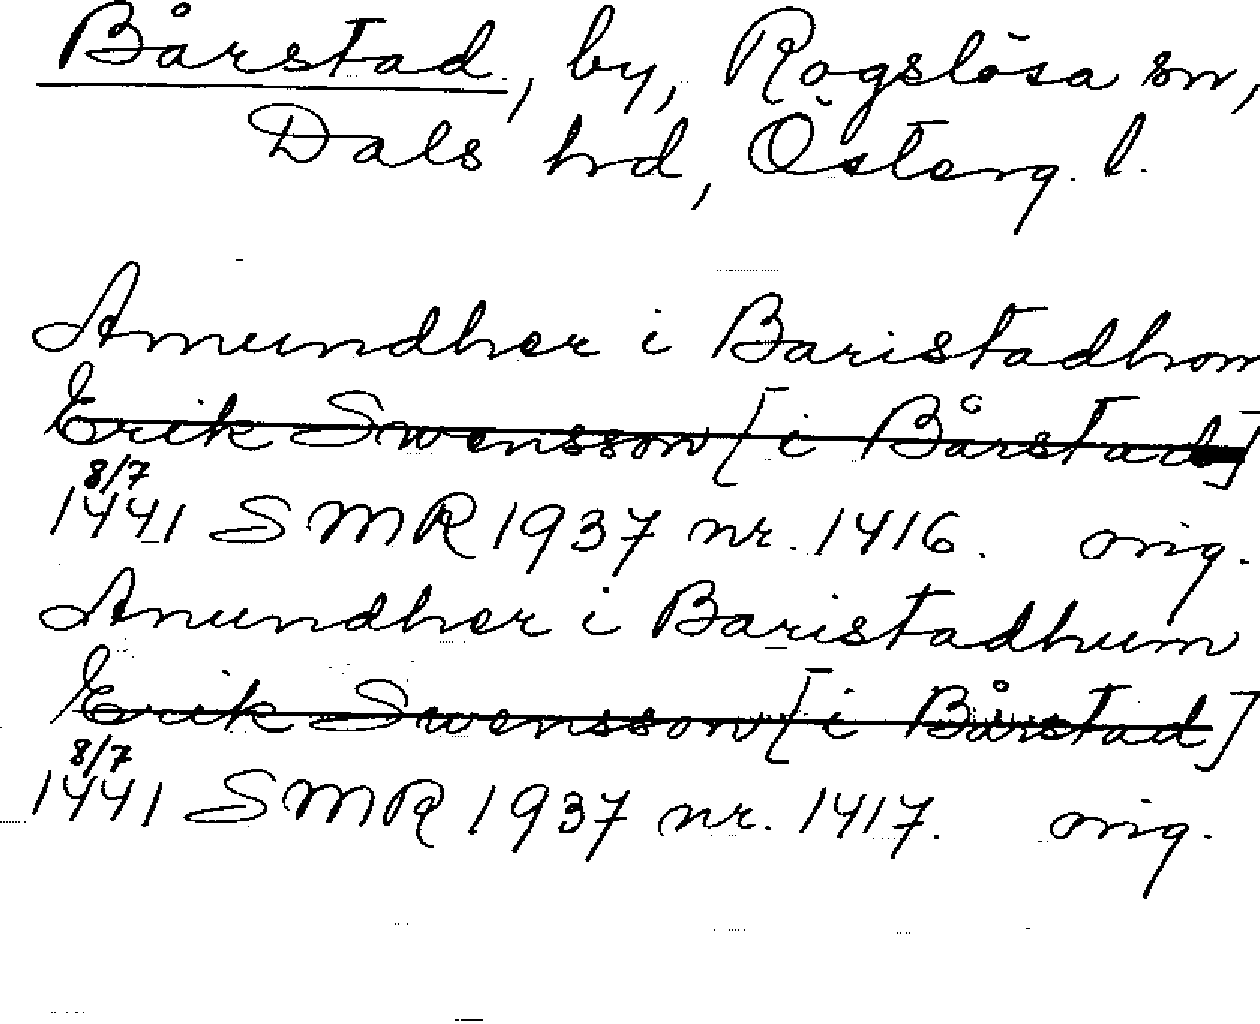 Bårstad, by, Rogslösa sn,
Dals hrd, Österg. l.
Amundher i Baristadhom
Erik Swensson [i Bårstad]
8/7
1441 SMR 1937 nr. 1416. orig.
Amundher i Baristadhum
Erik Swensson [i Bårstad]
8/7
1441 SMR 1937 nr. 1417. orig.